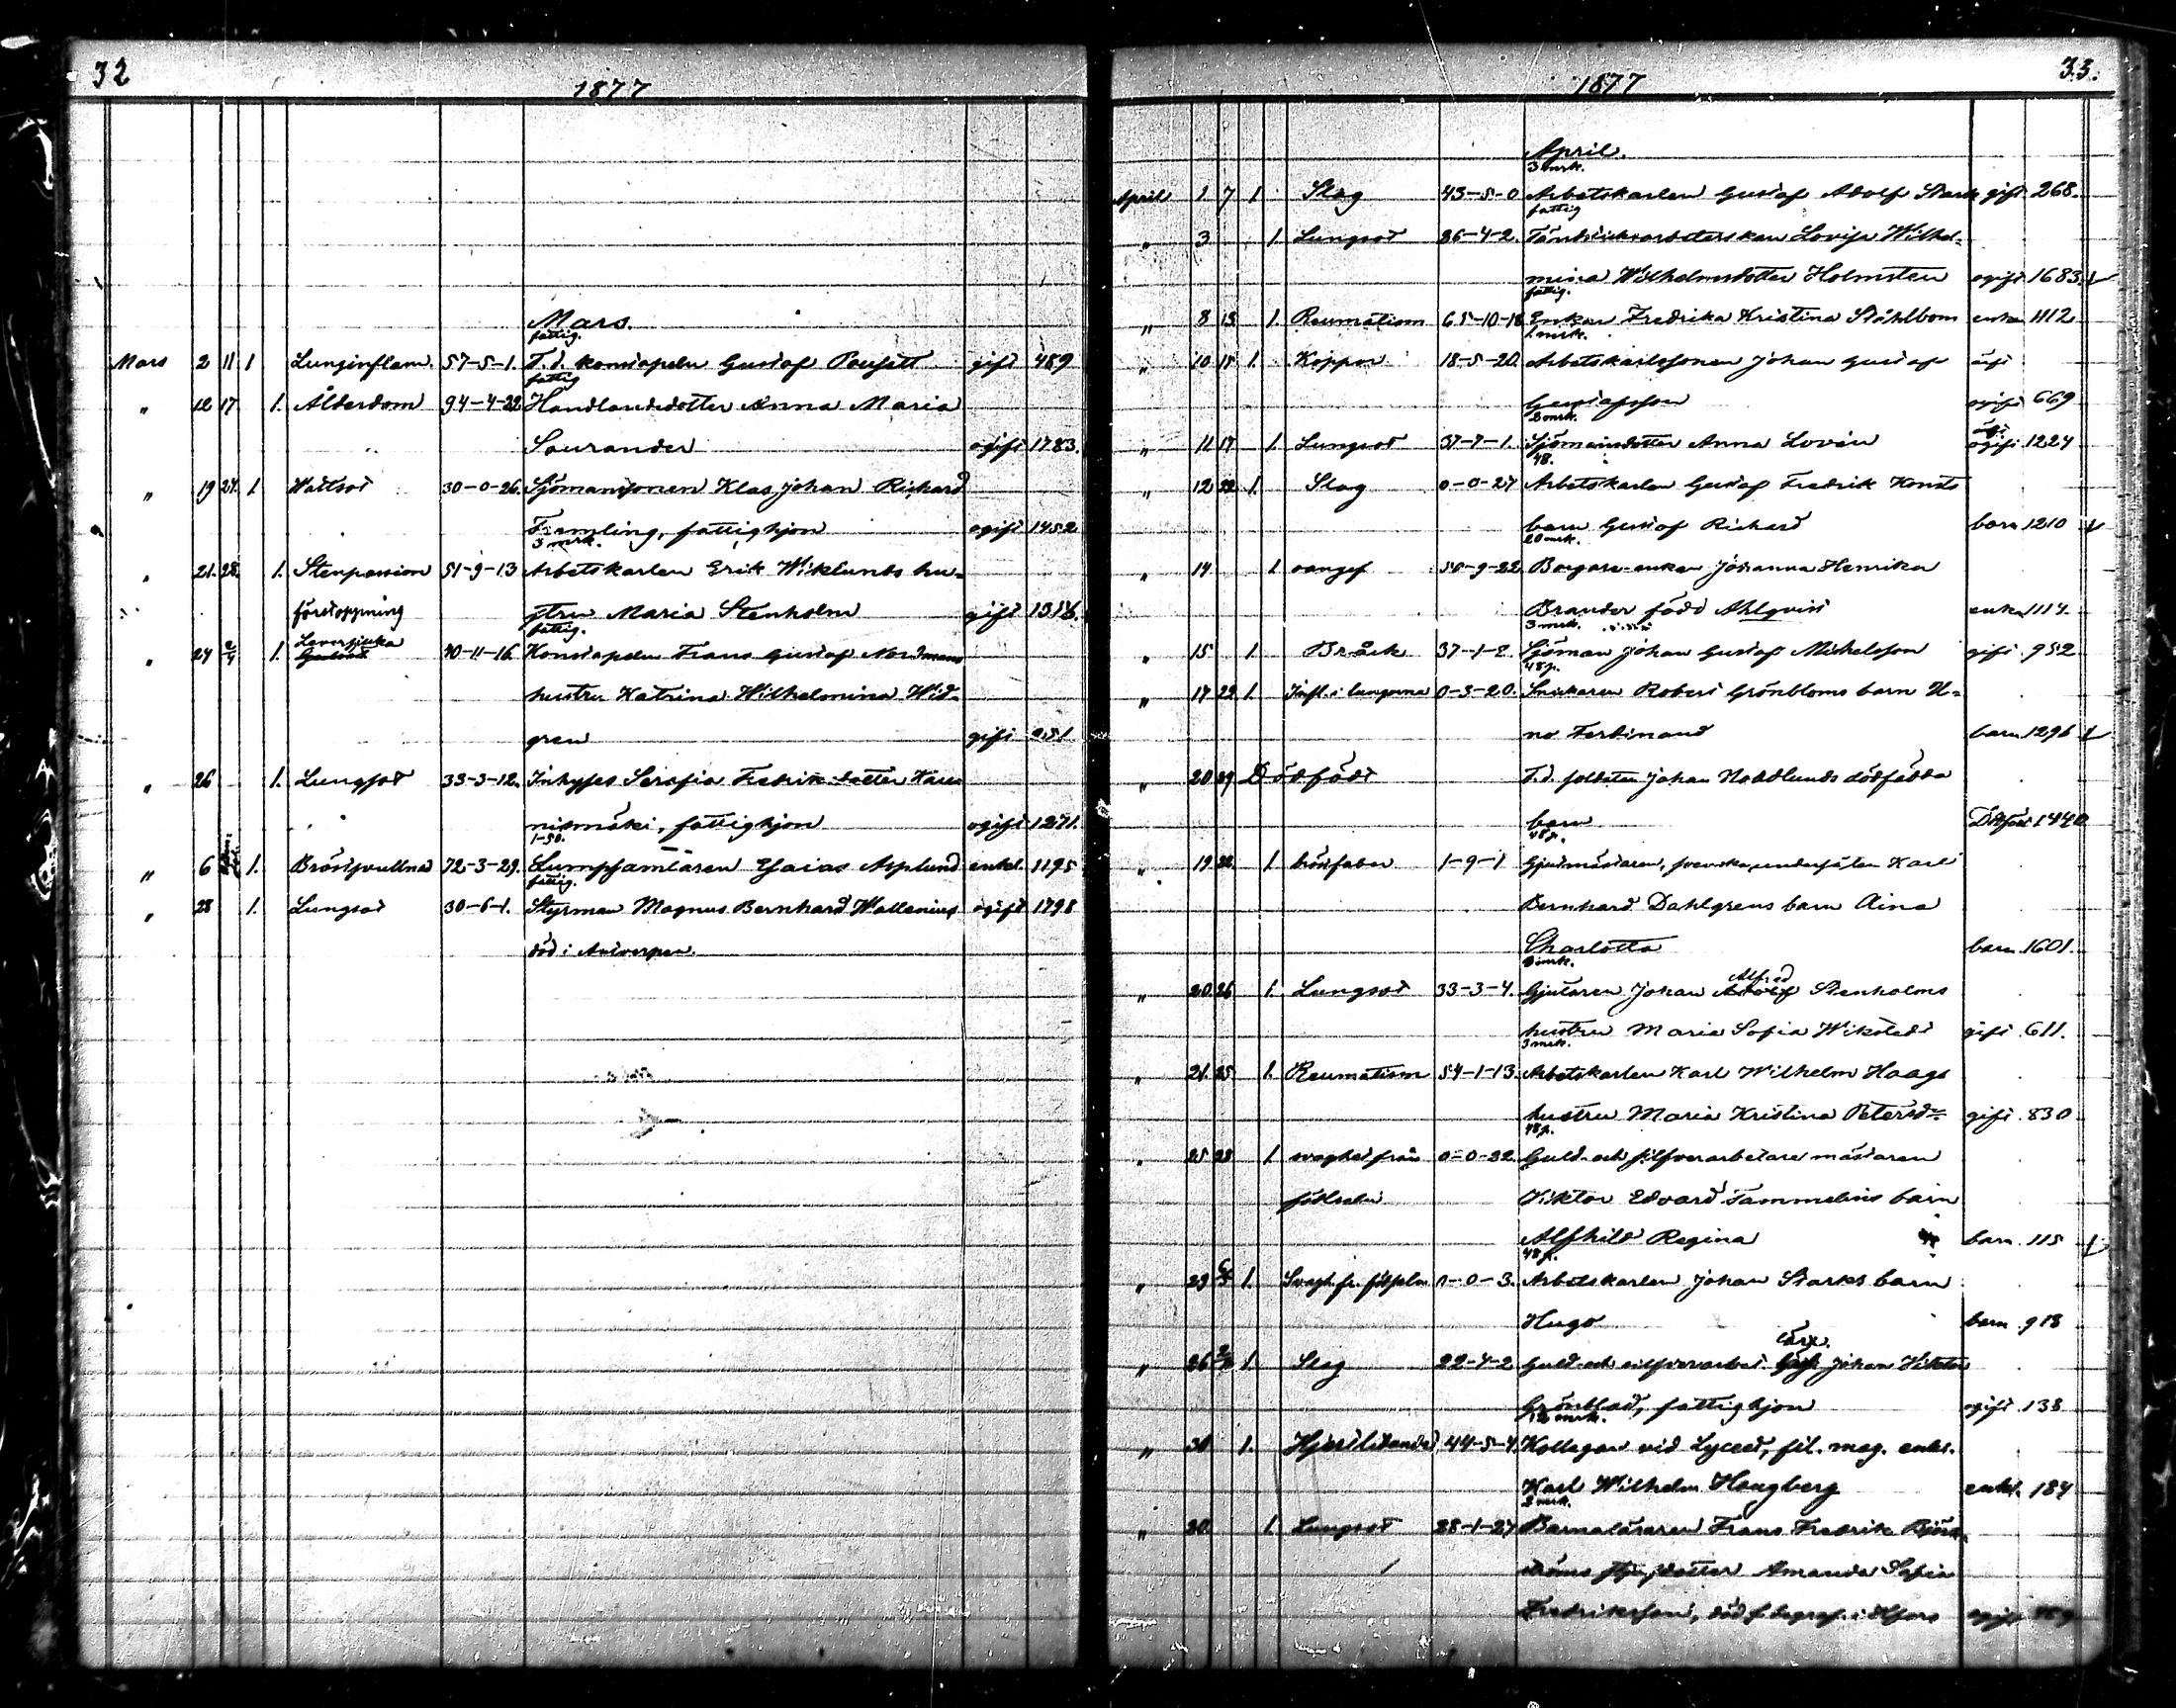 32
1877
Mars.
fattig.
Mars 2 11 1 Lunginflam. 57-5-1. F. d. konstapeln Gustaf gift 489
fattig
" 12 17 1. Ålderdom 94-4-22 Handlandedotter Anna Maria
Saurander ogift 1783.
" 19 24. 1 Wattsot 30-0-26. Sjömanssonen Klas Johan Richard
Framling, fattighjon ogift 1452
3 mrk.
" 21. 28. 1. Stenpassion 51-9-13 Arbetskarlen Erik Wiklunds hu-
förstoppning stru Maria Stenholm gift
fattig.
" 24 2/4 1. Leversjuka 40-11-16 Konstapeln Frans Gustaf Nordmans
hustru Katrina Wilhelmina Wid-
gren gift
" 26 1. Lungsot 33-3-12. Inhyses Serafia Fredriksdotter
fattighjon ogift 1271.
1-50.
" 6 1. Bröstsvullnad 72-3-29. Lumpsamlaren Esaias Asplund enkl. 1195
fattig.
" 28 1. Lungsot 30-6-1. Styrman Magnus Bernhard Wallenius ogift 1798
död i Antverpen.
1877
33.
April.
3 mrk.
April 1 7 1 Slag 43-5-0 Arbetskarlen Gustaf Adolf Stark gift 268.
fattig
" 3 1 Lungsot 36-4-2. Lovisa Wilhel-
mina Wilhelmsdotter Holmsten ogift 1683.
fattig.
" 8 15 1. Reumatism 65-10-18 Enkan Fredrika Kristina Ståhlbom enka 1112
1 mrk.
" 10 15 1. Koppor 18-5-20. Arbetskarlssonen Johan Gustaf
Gustafsson ogift 669
3 mrk.
" 11 17 1. Lungsot 37-7-1. Sjömansdotter Anna Lovén ogift 1224
48.
" 12 22 1. Slag 0-0-27 Arbetskarlen Gustaf Fredrik
barn Gustaf Richard barn 1210
20 mrk.
" 14 1 oangif 50-9-22 Borgare-enkan Johanna Henrika
Brander född Ahlqvist enka 1114.
3 mrk.
" 15 1. Bråck 37-1-2. Sjöman Johan Gustaf Mickelsson gift 952
48 p.
" 17 22 1. Infl. i lungorna 0-3-20. Snickaren Robert Grönbloms barn U-
no Ferdinand barn 1296
" 20 29 Dödfödt F. d. soldaten Johan Nordlunds dödfödda
barn Dödfödt 1440
48 p.
" 19 22 1 1-9-1 Gjutmästaren, svenska undersåten Karl
Bernhard Dahlgrens barn Aina
Charlotta barn 1601.
" 20 26 1. Lungsot 33-3-4. Gjutaren Johan Alfred Stenholms
hustru Maria Sofia Wikstedt gift 611.
3 mrk.
" 21. 25 1. Reumatism 54-1-13. Arbetskarlen Karl Wilhelm Haags
hustru Maria Kristina Petersdr gift 830
48 p.
" 25 28 1 svaghet från 0-0-22. Guld- och silfverarbetare mästaren
födseln Viktor Edvard Tammelins barn
Alfhild Regina barn 115
48 p.
" 29 6/5 1. Svagh. fr. födseln 0-0-3. Arbetskarlen Johan Starks barn
Hugo barn 918
" 26 1. Slag 22-4-2 Guld- och silfverarbet. Johan Viktor
Grönblad, fattighjon ogift 138
12 mrk.
" 30 1. Hjertlidande 44-5-4. Kollegan vid Lyceet, fil. mag. enkl.
Karl Wilhelm Hougberg enkl. 184
3 mrk.
" 30. 1. Lungsot 28-1-27 Barnaläraren Frans Fredrik
ströms Amanda Sofia
Fredriksson, ogift